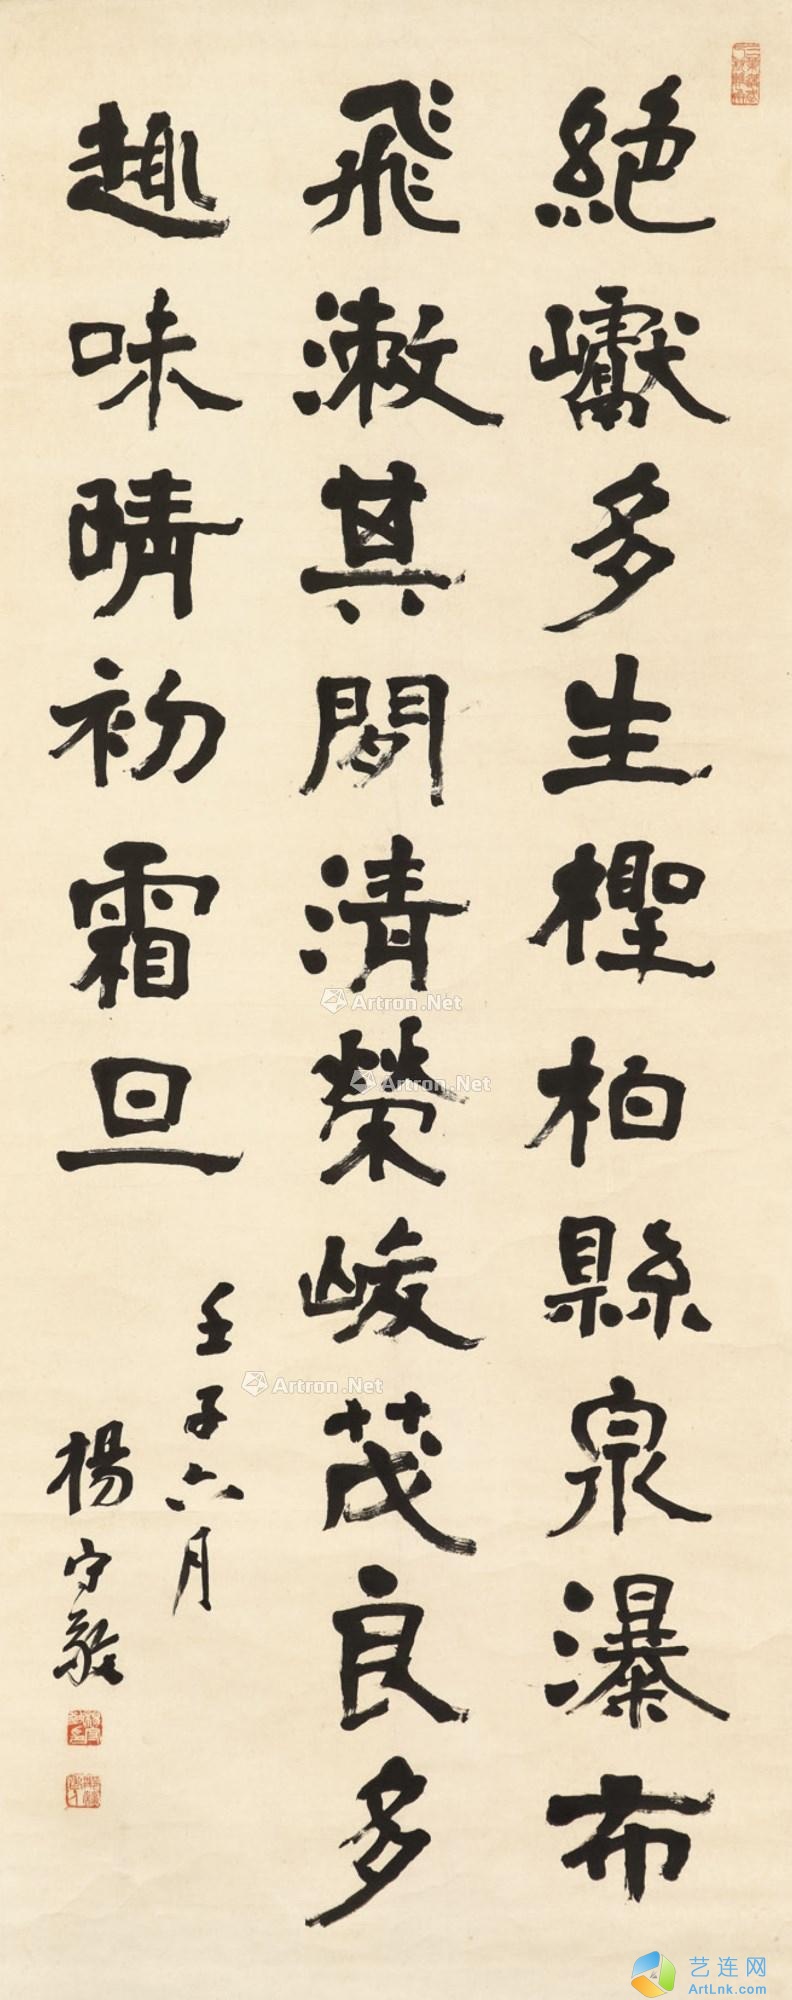 絕巘多生檉柏縣泉瀑布
飛漱其間清榮峻茂良多
趣味晴初霜旦
壬子六月
楊守敬
Artron.Net
Artron.Net
Artron.Net
艺连网
ArtLnk.com